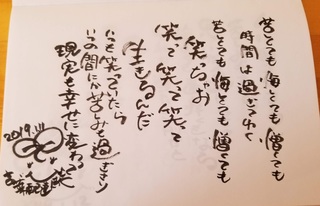 苦しくても 悔しくても 憎くても
時間は過ぎてゆく
苦しくても 悔しくても 憎くても
笑っちゃお
笑って 笑って 笑って
生きるんだ
いつも笑っていたら
いつの間にか苦しみも過ぎ去り
現実も幸せに変わる
2019.1.11